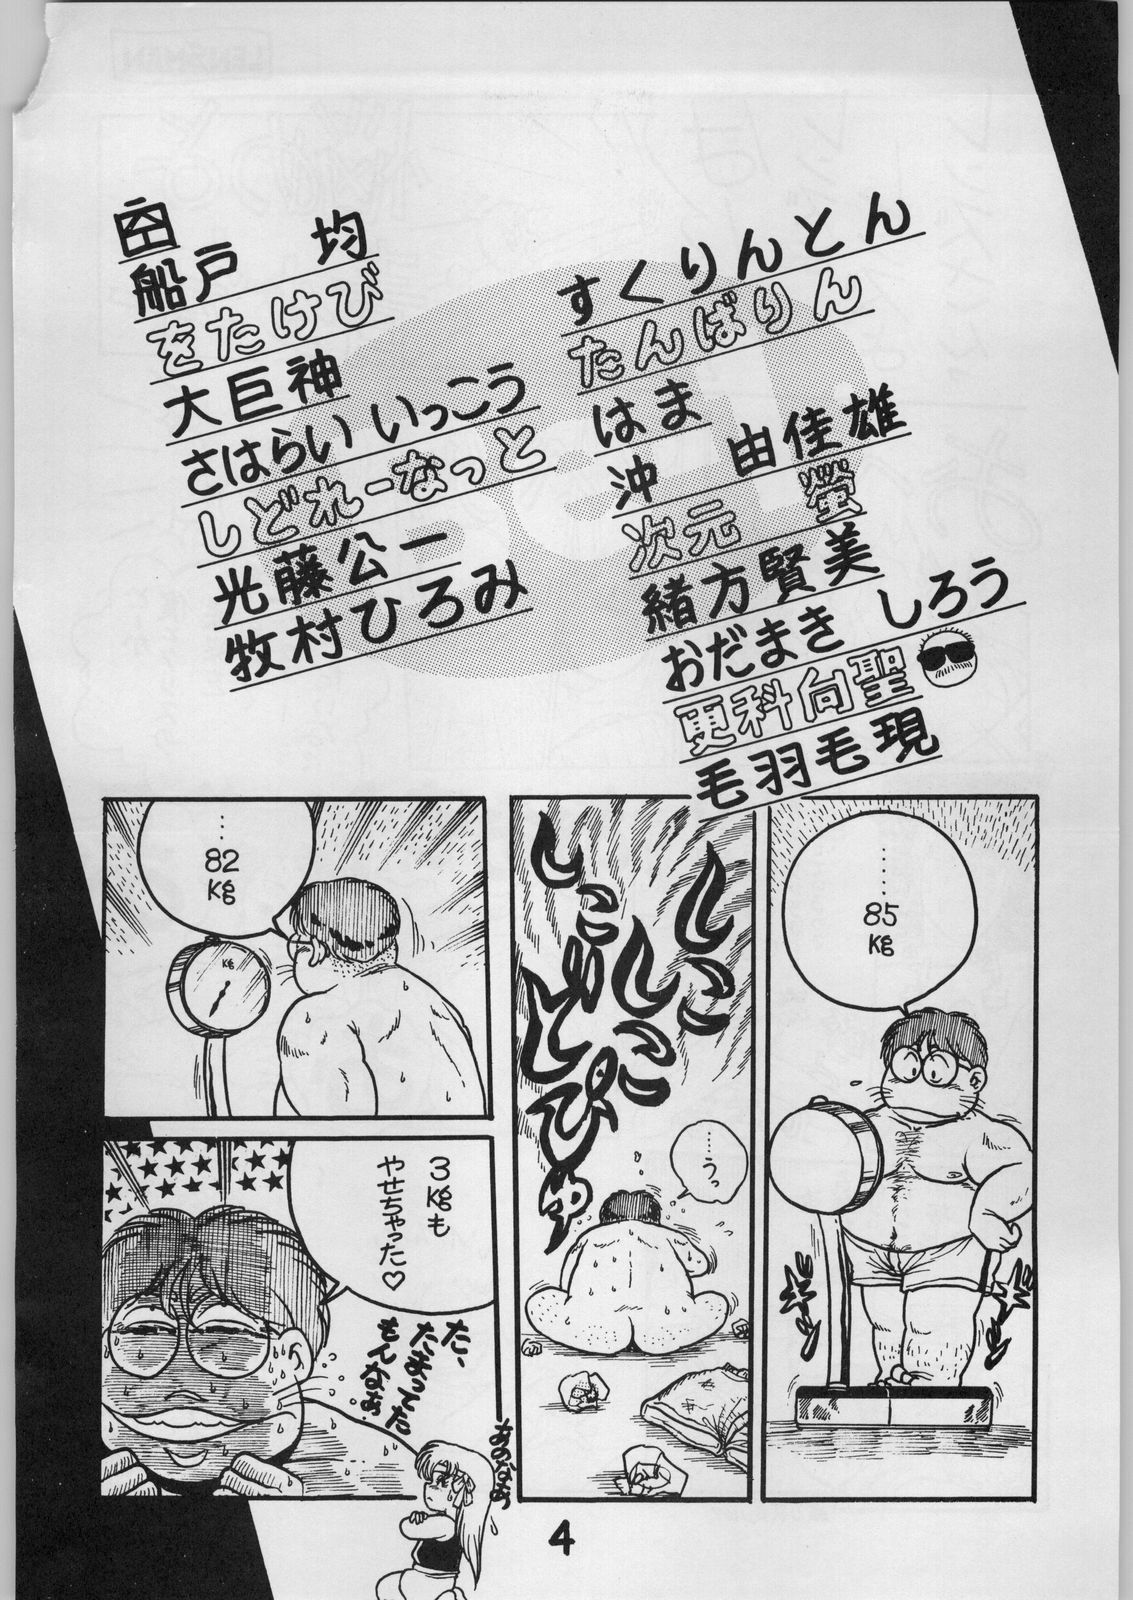 船戸 均
をたけび
大巨神
さはらい いっこう
しどれーなっと
光藤公一
牧村ひろみ
すくりんとん
たんばりん
はま
沖 由佳雄
次元 螢
緒方賢美
おだまき しろう
更科向聖
毛羽毛現
………
85
kg
しこ
しこ
しこ
しこ
どぴゅ
……うっ
…
82
kg
kg
3kgも
やせちゃった♡
た、
たまってた
もんなぁ…
あのなぁ
4